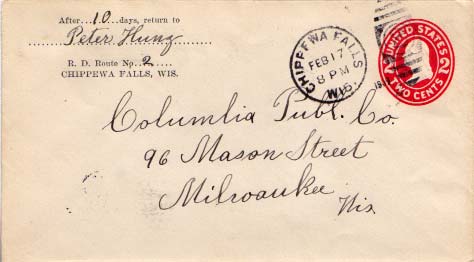 After 10 days, return to
Peter Hunz
R. D. Route No. 2
CHIPPEWA FALLS, WIS.
CHIPPEWA FALLS
FEB 17
8 PM
WIS.
UNITED STATES
2 2
TWO CENTS
Columbia Publ. Co.
96 Mason Street
Milwaukee
Wis